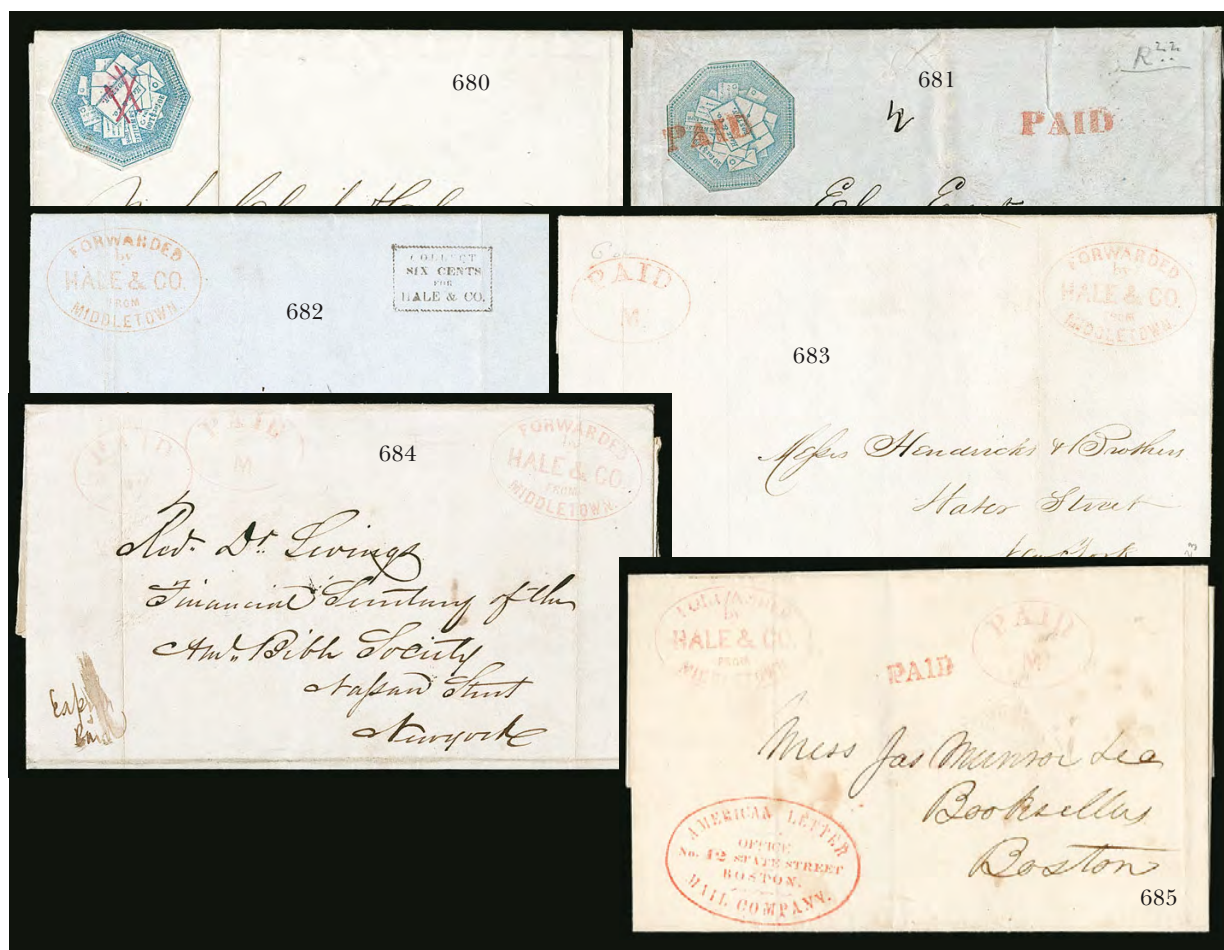 680
681
PAID
PAID
R
FORWARDED
by
HALE & CO.
FROM
MIDDLETOWN.
682
COLLECT
SIX CENTS
FOR
HALE & CO.
PAID
M.
683
FORWARDED
by
HALE & CO.
FROM
MIDDLETOWN.
Messrs Hendricks & Brothers
Water Street
New York
23
PAID
PAID
M
684
FORWARDED
by
HALE & CO.
FROM
MIDDLETOWN.
Rev. Dr. Levings
Financial Secretary of the
Am. Bible Society
Nassau Street
New york
Paid
FORWARDED
by
HALE & CO.
FROM
MIDDLETOWN.
PAID
PAID
M.
Mess Jas Munroe &
Booksellers
Boston
AMERICAN LETTER
OFFICE
No. 42 STATE STREET
BOSTON.
MAIL COMPANY.
685